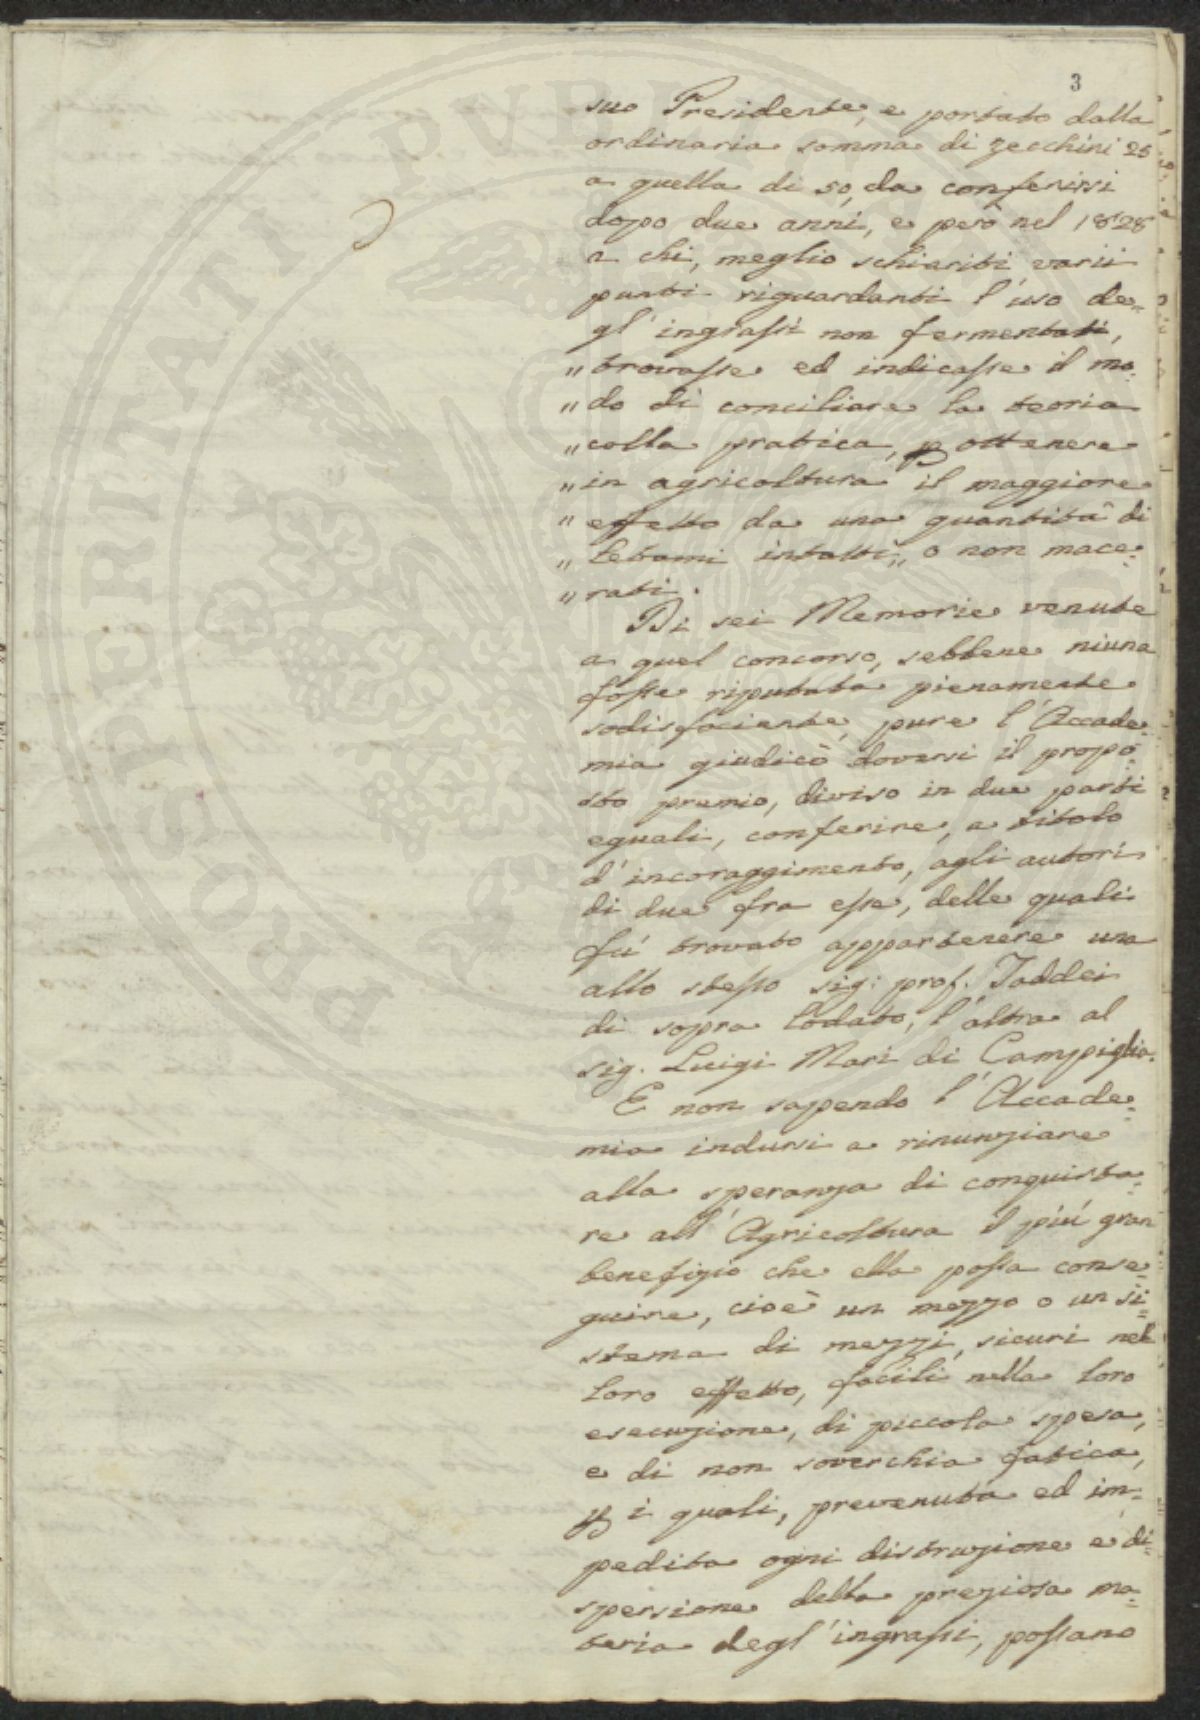 3
suo Presidente, e portato dalla
ordinaria somma di zecchini 25
a quella di 50, da conferirsi
dopo due anni, e però nel 1828
a chi, meglio schiariti varii
punti riguardanti l'uso de=
gl'ingrassi non fermentati,
"trovasse ed indicasse il mo=
"do di conciliare la teoria
"colla pratica, p ottenere
"in agricoltura il maggiore
"effetto da una quantità di
"letami intatti, o non mace=
"rati.
Di sei Memorie venute
a quel concorso, sebbene niuna
fosse riputata pienamente
sodisfaciente, pure l'Accade=
mia giudicò doversi il propo=
sto premio, diviso in due parti
eguali, conferire, a titolo
d'incoraggimento, agli autori
di due fra esse, delle quali
fù trovato appartenere una
allo stesso sig: prof. Taddei
di sopra lodato, l'altra al
sig. Luigi Mari di Campiglia.
E non sapendo l'Accade=
mia indursi a rinunziare
alla speranza di conquista=
re all'Agricoltura il più gran
benefizio che ella possa conse=
guire, cioè un mezzo o un si=
stema di mezzi, sicuri nel
loro effetto, facili nella loro
esecuzione, di piccola spesa,
e di non soverchia fatica,
p i quali, prevenuta ed im=
pedita ogni distruzione e di=
spersione della preziosa ma=
teria degl'ingrassi, possano
PROSPERITATI PUBLICAE